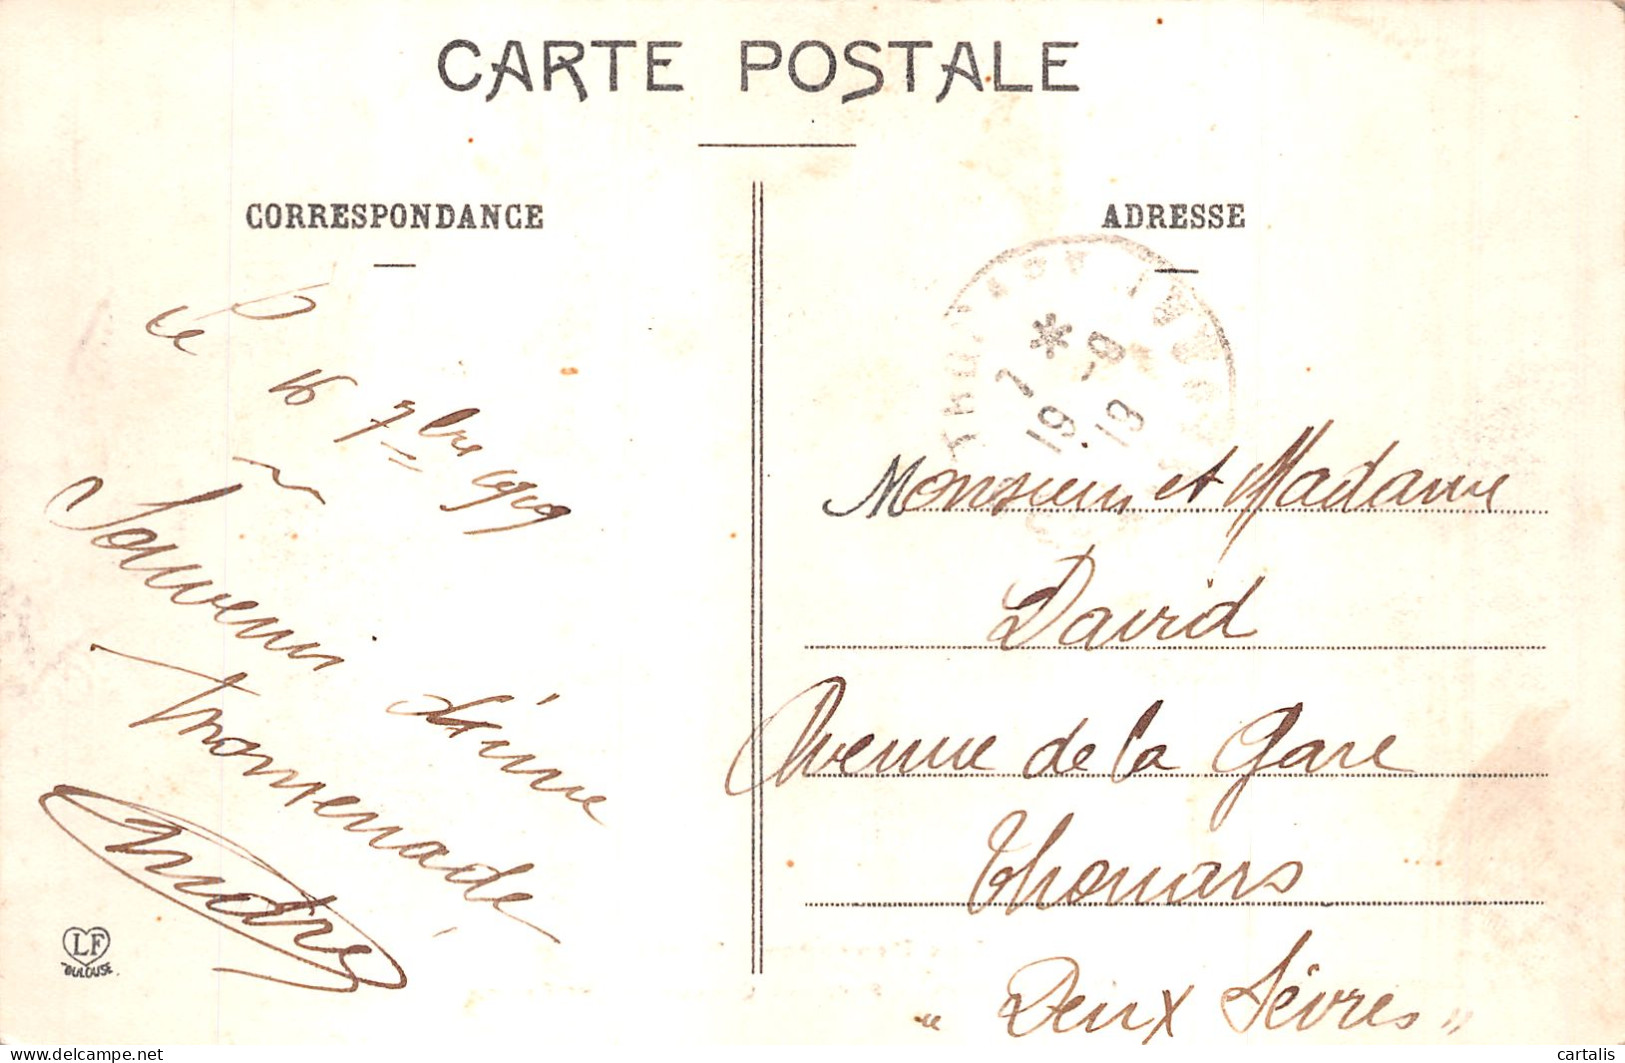 CARTE POSTALE
CORRESPONDANCE
ADRESSE
Le 16 7bre 1919
Souvenir d'une
promenade
André
Monsieur et Madame
David
Avenue de la Gare
Thouars
" Deux Sèvres "
7 * -8
19 19
LF
TOULOUSE.
delcampe.net
cartalis